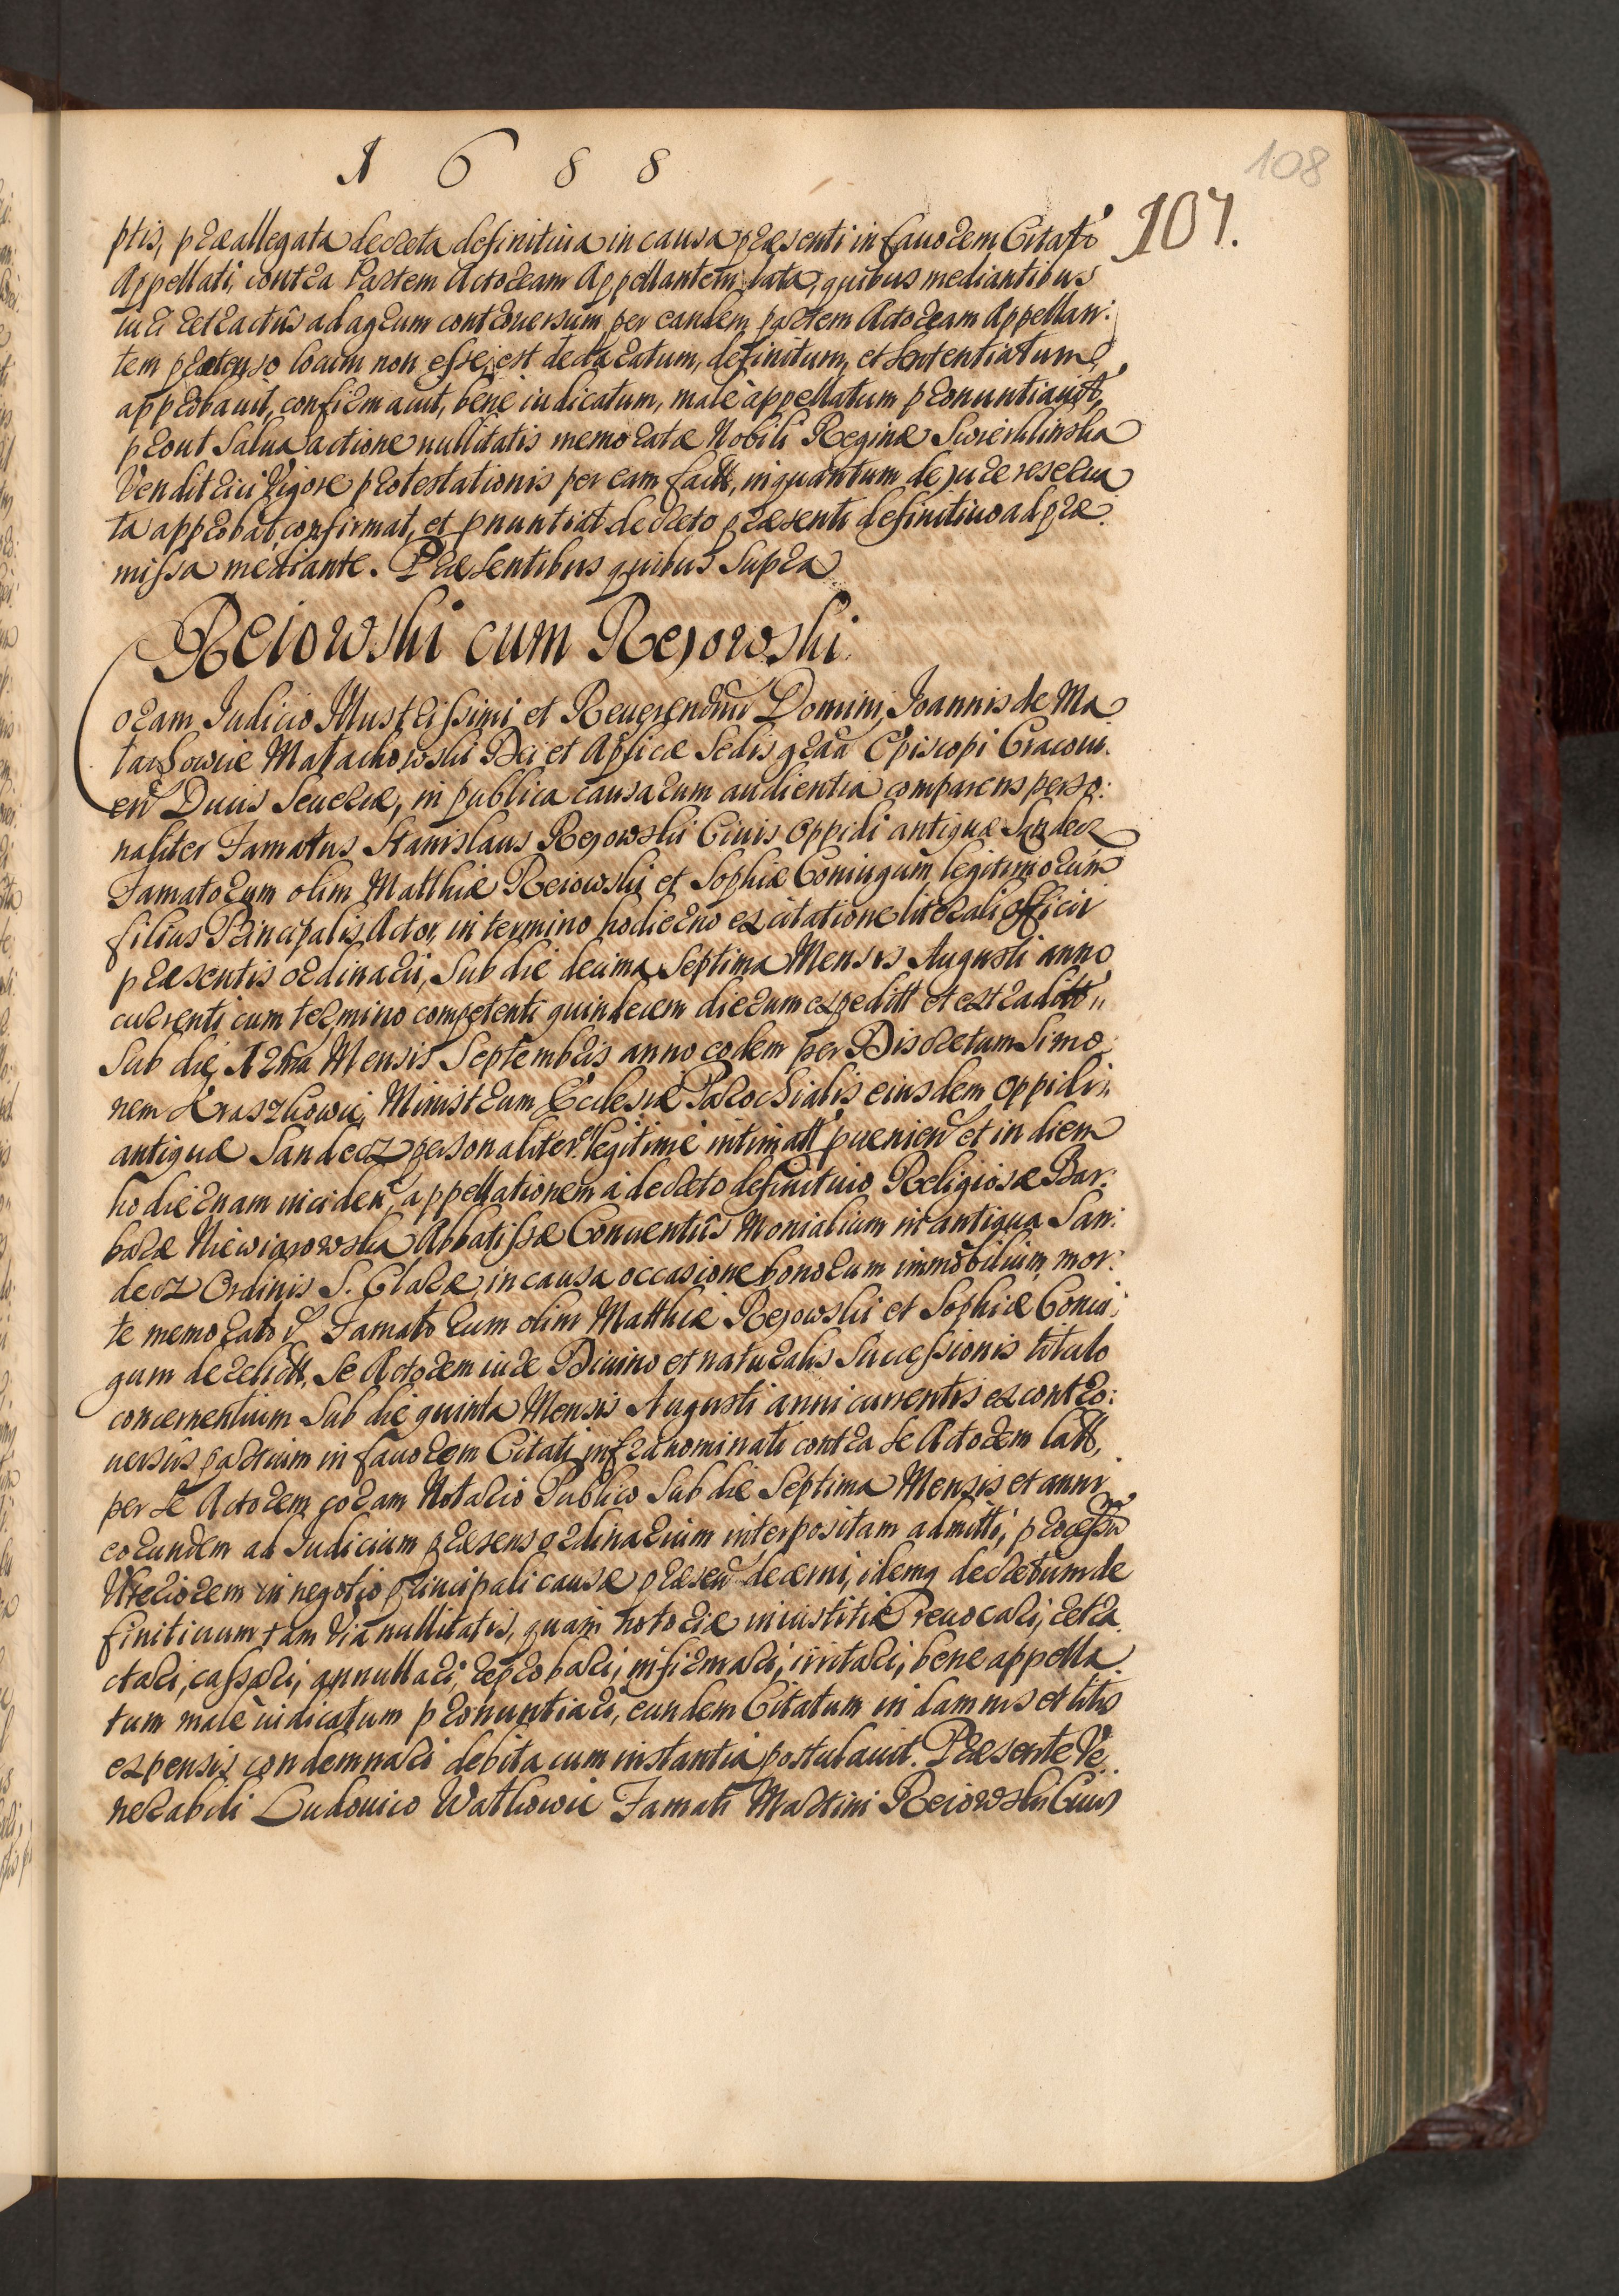 1688
108
107.
ptis, præallegata decreta definitiua in causa præsenti in fauorem Citati
Appellati, contra Partem Actoream Appellantem lata, quibus mediantibus
iuri retractûs ad agrum controuersum per eandem partem Actoream Appellan:
tem prætenso locum non esse, est declaratum, definitum, et sententiatum,
approbauit, confirmauit, bene iudicatum, malè appellatum pronuntiauit,
prout salua actione nullitatis memoratæ Nobili Reginæ Swierklinska
Venditrici vigore protestationis per eam factt, inquantum de jure reserua
ta approbat, confirmat, et pnuntiat decreto præsenti definitiuo ad præ
missa mediante. Præsentibus quibus supra
Reiowski cum Rejowski.
Coram Judicio Illustrissimi et Reuerendmi Domini, Joannis de Ma
łachowice Małachowski Dei et Aplicæ Sedis graa Episcopi Cracoui.
en Ducis Seueriæ, in publica causarum audientia comparens perso:
naliter Famatus Stanislaus Rejowski Ciuis Oppidi antiquæ Sandecz
Famatorum olim Matthiæ Reiowski et Sophiæ Coniugum legitimorum
filius Principalis Actor, in termino hodierno ex citatione literali officii
præsentis ordinarii, sub die decima septima Mensis Augusti anno
currenti cum termino competenti quindecem dierum expeditt et extraditt,,
Sub die 12ma Mensis Septembris anno eodem per Discretum Simo
nem Kraszkowic, Ministrum Ecclesiæ Parochialis eiusdem Oppidi,,
antiquæ Sandecz personaliter et legitimè intimatt pueniem et in diem
hodiernam inciden, appellationem à decreto definitiuo Religiosæ Bar:
baræ Niewiarowska Abbatissæ Conuentûs Monialium in antiqua San:
decz Ordinis S. Claræ, in causa occasione bonorum immobilium mor:
te memorator Famatorum olim Matthiæ Rejowski et Sophiæ Coniu:
gum derelictt, se Actorem iure Diuino et naturalis Successionis titulo
concernentium sub die quinta Mensis Augusti anni currentis ex contro:
uersiis partium in fauorem Citati infranominati contra se Actorem latt,
per se Actorem coram Notario Publico sub die Septima Mensis et anni
eorundem ad Judicium præsens ordinarium interpositam admitti, processum
Vlteriorem in negotio principali causæ præsen decerni, idemq decretum de
finitiuum tam via nullitatis, quam notoriæ iniustitiæ reuocari, retra
ctari, cassari, annullari, reprobari, infirmari, irritari, bene appella
tum malè iudicatum pronuntiari, eundem Citatum in damnis et litis
expensis condemnari debita cum instantia postulauit. Præsente Ve
nerabili Ludouico Watkowic Famati Martini Reiowski Ciuis